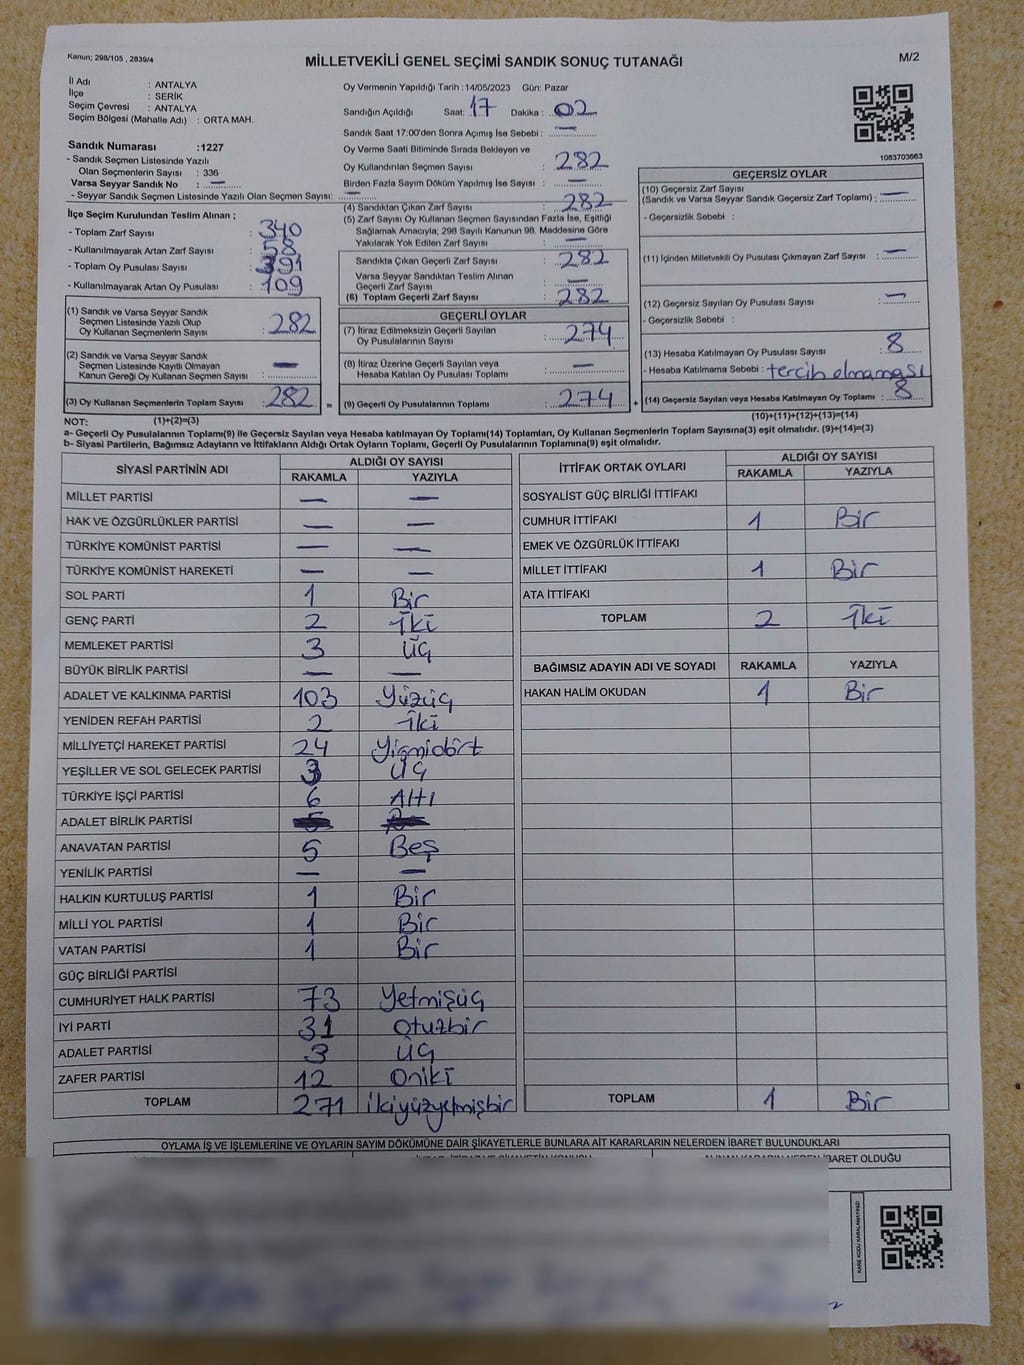 Kanun; 298/105 , 2839/4
MİLLETVEKİLİ GENEL SEÇİMİ SANDIK SONUÇ TUTANAĞI
M/2
İl Adı : ANTALYA
İlçe : SERİK
Seçim Çevresi : ANTALYA
Seçim Bölgesi (Mahalle Adı) : ORTA MAH.
Sandık Numarası :1227
- Sandık Seçmen Listesinde Yazılı
Olan Seçmenlerin Sayısı : 336
Varsa Seyyar Sandık No : —
- Seyyar Sandık Seçmen Listesinde Yazılı Olan Seçmen Sayısı: —
İlçe Seçim Kurulundan Teslim Alınan ;
- Toplam Zarf Sayısı : 340
- Kullanılmayarak Artan Zarf Sayısı : 58
- Toplam Oy Pusulası Sayısı : 391
- Kullanılmayarak Artan Oy Pusulası : 109
(1) Sandık ve Varsa Seyyar Sandık
Seçmen Listesinde Yazılı Olup
Oy Kullanan Seçmenlerin Sayısı : 282
(2) Sandık ve Varsa Seyyar Sandık
Seçmen Listesinde Kayıtlı Olmayan
Kanun Gereği Oy Kullanan Seçmen Sayısı : —
(3) Oy Kullanan Seçmenlerin Toplam Sayısı : 282
Oy Vermenin Yapıldığı Tarih :14/05/2023 Gün: Pazar
Sandığın Açıldığı Saat: 17 Dakika : 02
Sandık Saat 17:00'den Sonra Açımış İse Sebebi : —
Oy Verme Saati Bitiminde Sırada Bekleyen ve
Oy Kullandırılan Seçmen Sayısı : 282
Birden Fazla Sayım Döküm Yapılmış İse Sayısı : —
(4) Sandıktan Çıkan Zarf Sayısı : 282
(5) Zarf Sayısı Oy Kullanan Seçmen Sayısından Fazla İse, Eşitliği
Sağlamak Amacıyla, 298 Sayılı Kanunun 98. Maddesine Göre
Yakılarak Yok Edilen Zarf Sayısı : —
Sandıkta Çıkan Geçerli Zarf Sayısı : 282
Varsa Seyyar Sandıktan Teslim Alınan
Geçerli Zarf Sayısı : —
(6) Toplam Geçerli Zarf Sayısı : 282
GEÇERLİ OYLAR
(7) İtiraz Edilmeksizin Geçerli Sayılan
Oy Pusulalarının Sayısı : 274
(8) İtiraz Üzerine Geçerli Sayılan veya
Hesaba Katılan Oy Pusulası Toplamı : —
= (9) Geçerli Oy Pusulalarının Toplamı : 274 +
1063703663
GEÇERSİZ OYLAR
(10) Geçersiz Zarf Sayısı
(Sandık ve Varsa Seyyar Sandık Geçersiz Zarf Toplamı) : —
- Geçersizlik Sebebi :
(11) İçinden Milletvekili Oy Pusulası Çıkmayan Zarf Sayısı : —
(12) Geçersiz Sayılan Oy Pusulası Sayısı : —
- Geçersizlik Sebebi :
(13) Hesaba Katılmayan Oy Pusulası Sayısı : 8
- Hesaba Katılmama Sebebi : tercih olmaması
(14) Geçersiz Sayılan veya Hesaba Katılmayan Oy Toplamı : 8
NOT: (1)+(2)=(3) (10)+(11)+(12)+(13)=(14)
a- Geçerli Oy Pusulalarının Toplamı(9) ile Geçersiz Sayılan veya Hesaba katılmayan Oy Toplamı(14) Toplamları, Oy Kullanan Seçmenlerin Toplam Sayısına(3) eşit olmalıdır. (9)+(14)=(3)
b- Siyasi Partilerin, Bağımsız Adayların ve İttifakların Aldığı Ortak Oyların Toplamı, Geçerli Oy Pusulalarının Toplamına(9) eşit olmalıdır.
SİYASİ PARTİNİN ADI ALDIĞI OY SAYISI
RAKAMLA YAZIYLA
MİLLET PARTİSİ — —
HAK VE ÖZGÜRLÜKLER PARTİSİ — —
TÜRKİYE KOMÜNİST PARTİSİ — —
TÜRKİYE KOMÜNİST HAREKETİ — —
SOL PARTİ 1 Bir
GENÇ PARTİ 2 İki
MEMLEKET PARTİSİ 3 Üç
BÜYÜK BİRLİK PARTİSİ — —
ADALET VE KALKINMA PARTİSİ 103 Yüzüç
YENİDEN REFAH PARTİSİ 2 İki
MİLLİYETÇİ HAREKET PARTİSİ 24 Yirmidört
YEŞİLLER VE SOL GELECEK PARTİSİ 3 Üç
TÜRKİYE İŞÇİ PARTİSİ 6 Altı
ADALET BİRLİK PARTİSİ
ANAVATAN PARTİSİ 5 Beş
YENİLİK PARTİSİ — —
HALKIN KURTULUŞ PARTİSİ 1 Bir
MİLLİ YOL PARTİSİ 1 Bir
VATAN PARTİSİ 1 Bir
GÜÇ BİRLİĞİ PARTİSİ
CUMHURİYET HALK PARTİSİ 73 Yetmişüç
İYİ PARTİ 31 Otuzbir
ADALET PARTİSİ 3 Üç
ZAFER PARTİSİ 12 Oniki
TOPLAM 271 ikiyüzyetmişbir
İTTİFAK ORTAK OYLARI ALDIĞI OY SAYISI
RAKAMLA YAZIYLA
SOSYALİST GÜÇ BİRLİĞİ İTTİFAKI
CUMHUR İTTİFAKI 1 Bir
EMEK VE ÖZGÜRLÜK İTTİFAKI
MİLLET İTTİFAKI 1 Bir
ATA İTTİFAKI
TOPLAM 2 İki
BAĞIMSIZ ADAYIN ADI VE SOYADI RAKAMLA YAZIYLA
HAKAN HALİM OKUDAN 1 Bir
TOPLAM 1 Bir
OYLAMA İŞ VE İŞLEMLERİNE VE OYLARIN SAYIM DÖKÜMÜNE DAİR ŞİKAYETLERLE BUNLARA AİT KARARLARIN NELERDEN İBARET BULUNDUKLARI
ALINAN KARARIN NEDEN İBARET OLDUĞU